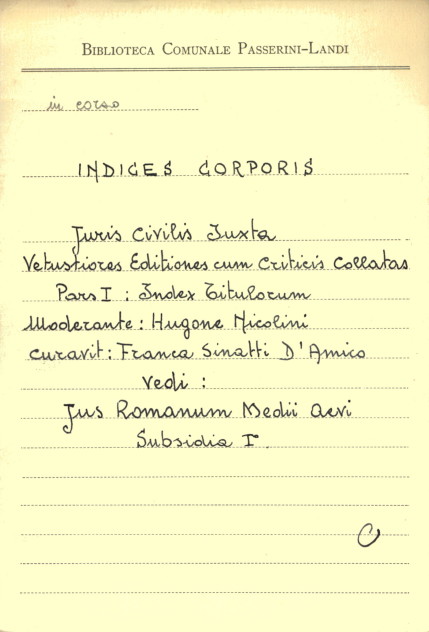 BIBLIOTECA COMUNALE PASSERINI-LANDI
in corso
INDICES CORPORIS
Juris Civilis Juxta
Vetustiores Editiones cum Criticis Collatas
Pars I : Index Titulorum
Moderante : Hugone Nicolini
curavit : Franca Sinatti D'Amico
vedi :
Jus Romanum Medii Aevi
Subsidia I.
C